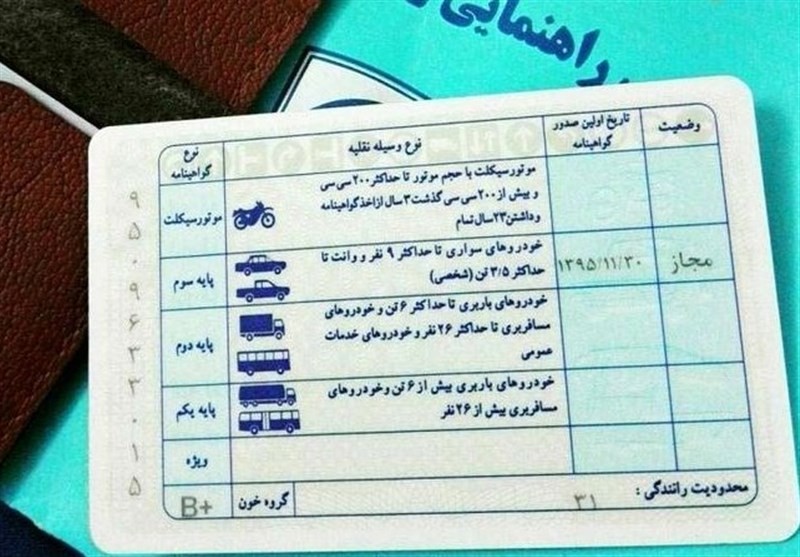 راهنمایی
وضعیت
تاریخ اولین صدور
گواهینامه
نوع وسیله نقلیه
نوع
گواهینامه
موتورسیکلت با حجم موتور تا حداکثر ۲۰۰ سی سی
و بیش از ۲۰۰ سی سی گذشت ۳ سال از اخذ گواهینامه
و داشتن ۲۳ سال تمام
موتورسیکلت
مجاز
۱۳۹۵/۱۱/۳۰
خودروهای سواری تا حداکثر ۹ نفر و وانت تا
حداکثر ۳/۵ تن (شخصی)
پایه سوم
خودروهای باربری تا حداکثر ۶ تن و خودروهای
مسافربری تا حداکثر ۲۶ نفر و خودروهای خدمات
عمومی
پایه دوم
خودروهای باربری بیش از ۶ تن و خودروهای
مسافربری بیش از ۲۶ نفر
پایه یکم
ویژه
محدودیت رانندگی :
۳۱
گروه خون
B+
۹۵۰۹۶۳۳۰۱۵